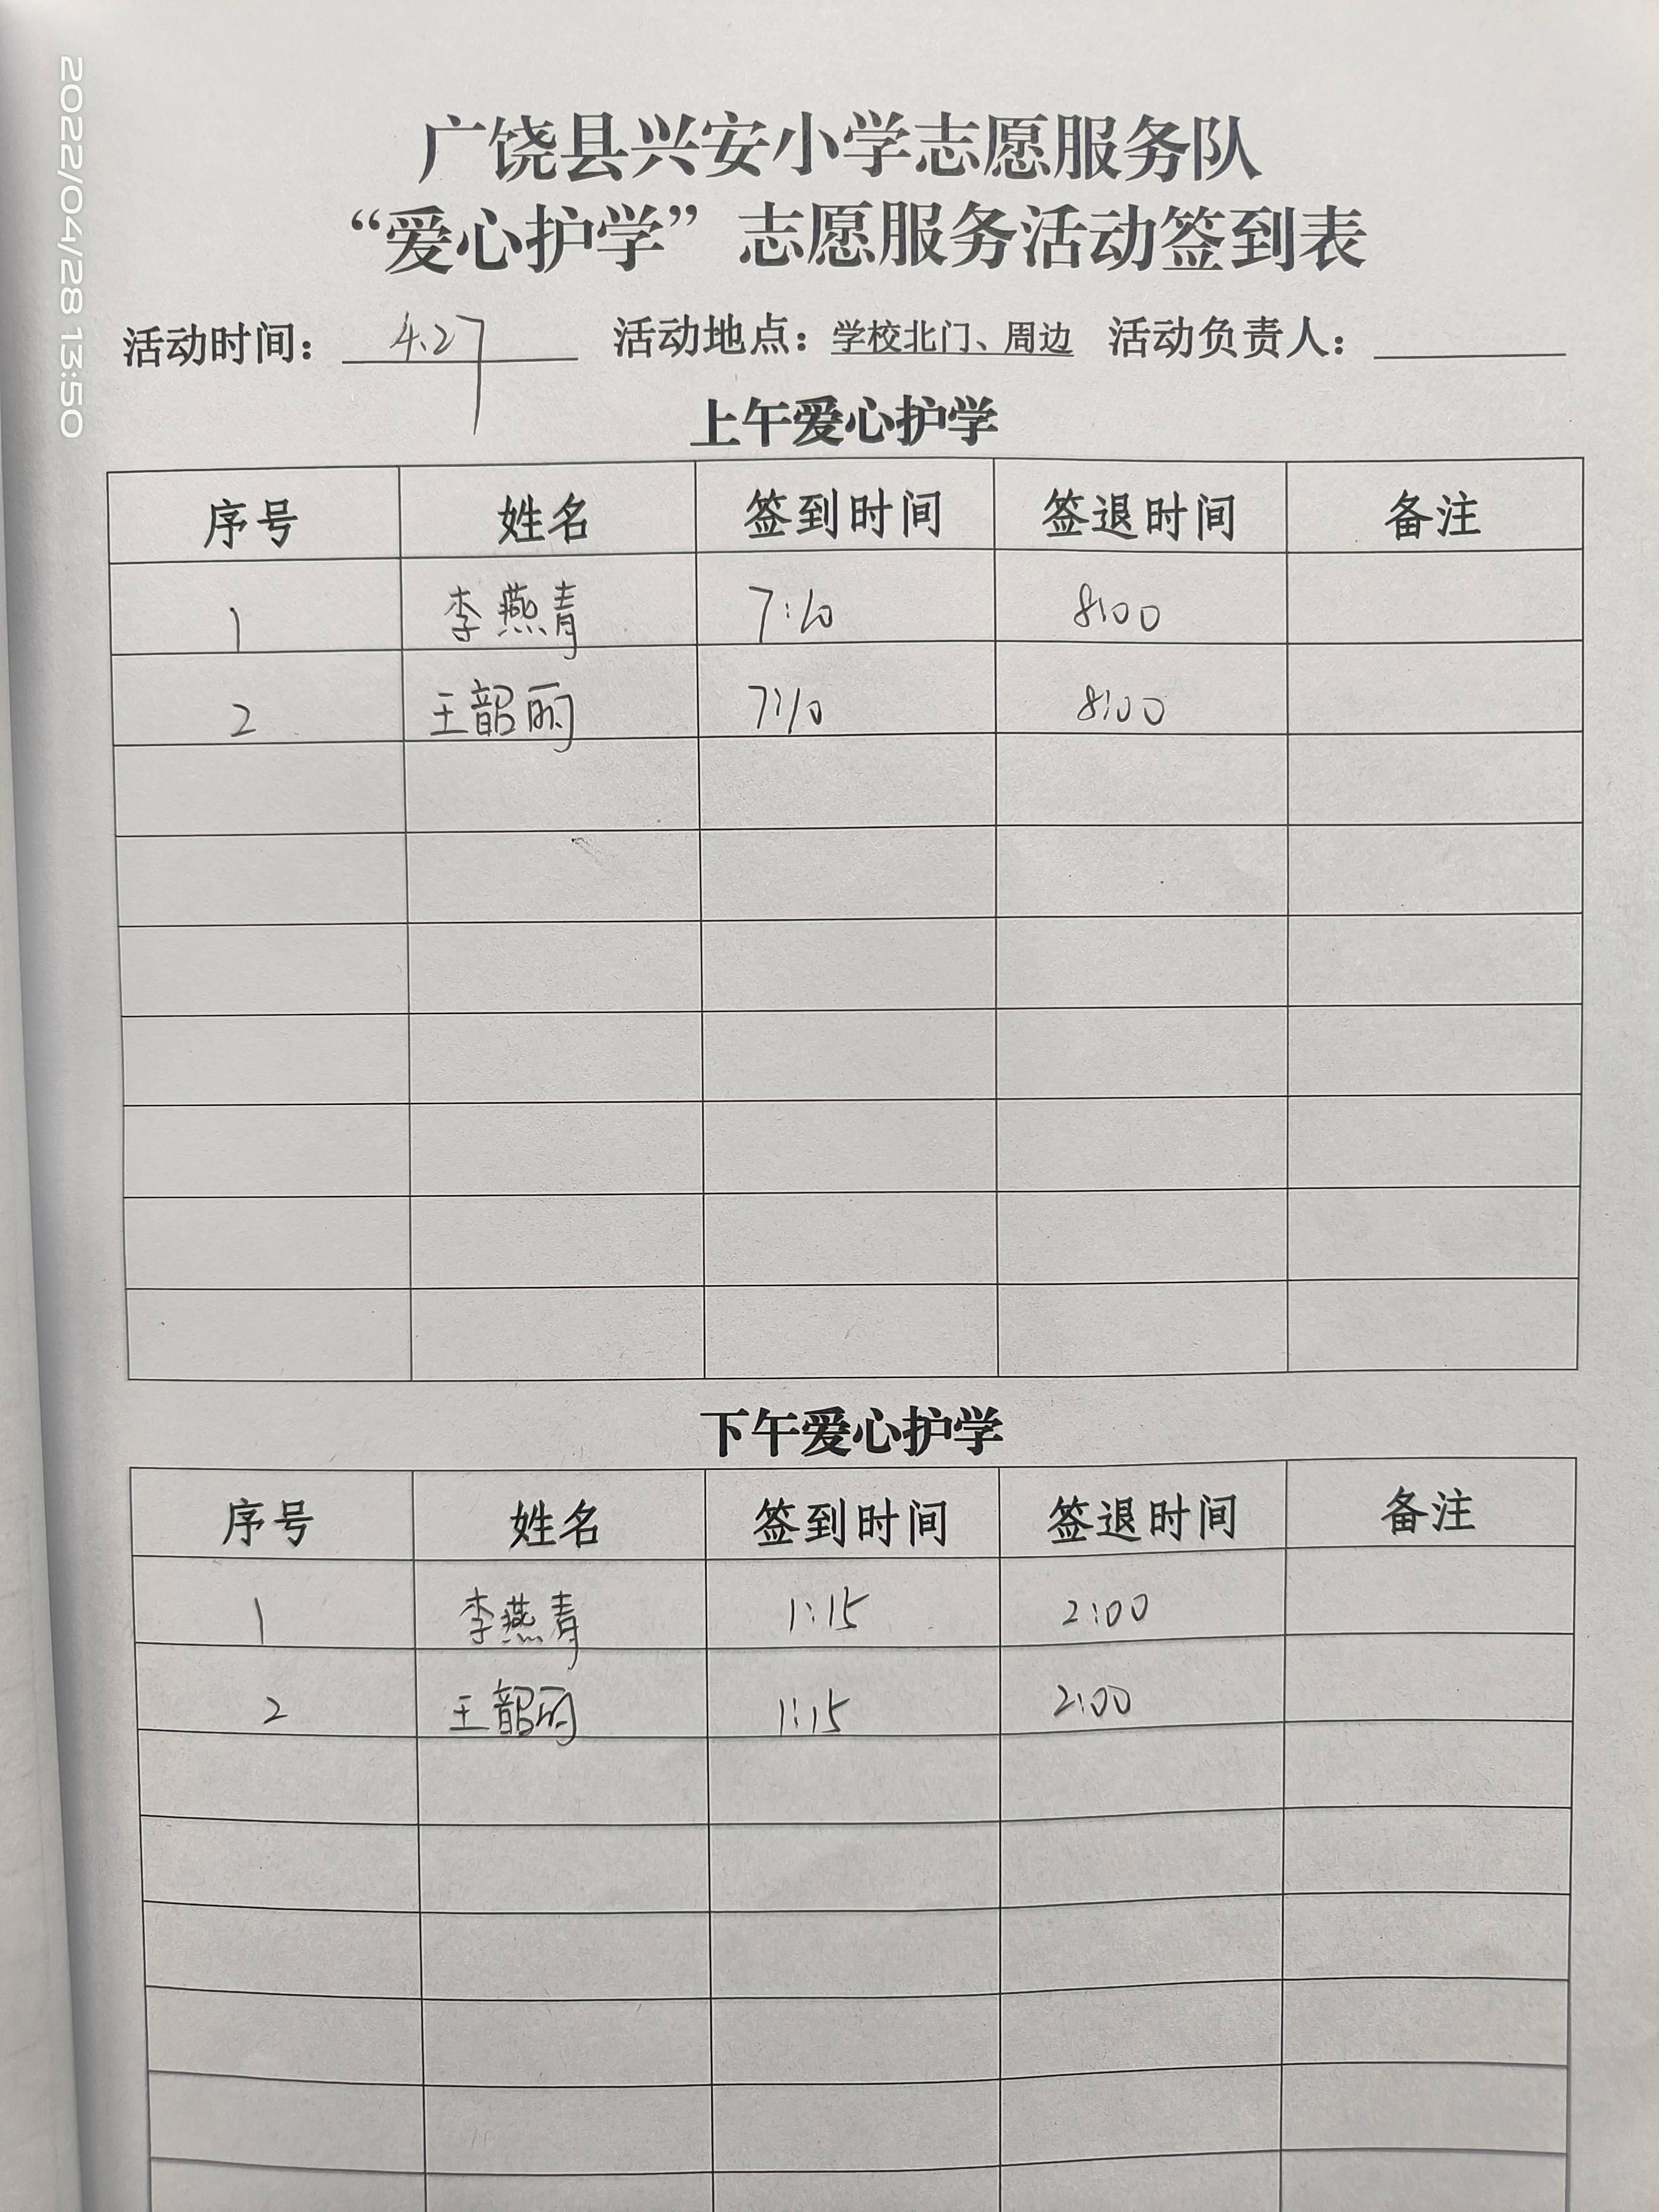 2022/04/28 13:50
广饶县兴安小学志愿服务队
“爱心护学”志愿服务活动签到表
活动时间： 4.27 活动地点：学校北门、周边 活动负责人：
上午爱心护学
序号 姓名 签到时间 签退时间 备注
1 李燕青 7:10 8:00
2 王韶丽 7:10 8:00
下午爱心护学
序号 姓名 签到时间 签退时间 备注
1 李燕青 1:15 2:00
2 王韶丽 1:15 2:00